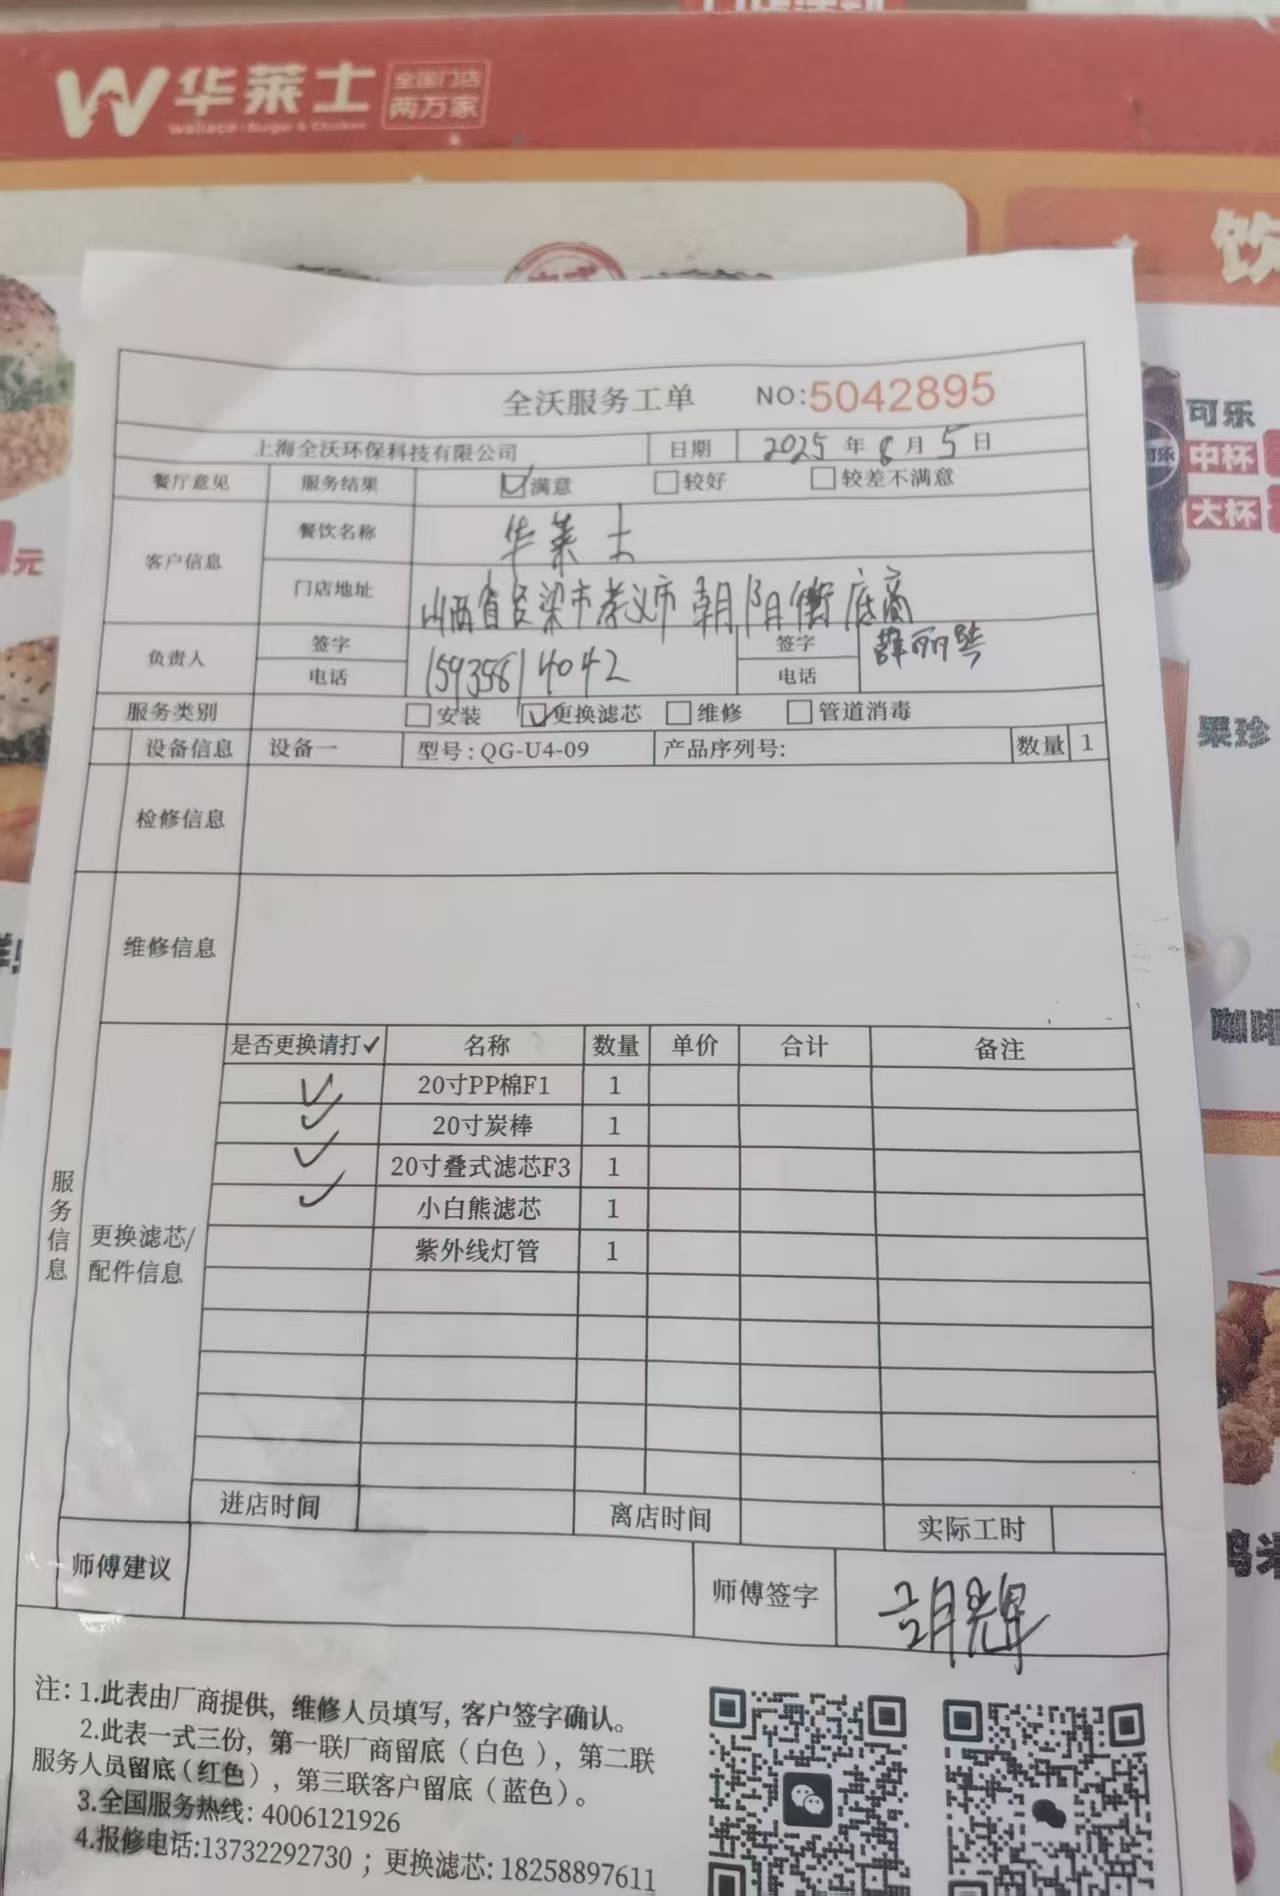 华莱士
Wallace · Burger & Chicken
全国门店
两万家
饮
可乐
中杯
大杯
元
果珍
咖啡
全沃服务工单 NO:5042895
上海全沃环保科技有限公司 日期 2025年8月5日
餐厅意见 服务结果 满意 较好 较差不满意
客户信息 餐饮名称 华莱士
门店地址 山西省吕梁市孝义市朝阳街底商
负责人 签字 签字 薛丽琴
电话 15935814042 电话
服务类别 安装 更换滤芯 维修 管道消毒
设备信息 设备一 型号:QG-U4-09 产品序列号: 数量 1
检修信息
维修信息
服务信息
更换滤芯/
配件信息
是否更换请打✓ 名称 数量 单价 合计 备注
✓ 20寸PP棉F1 1
✓ 20寸炭棒 1
✓ 20寸叠式滤芯F3 1
✓ 小白熊滤芯 1
紫外线灯管 1
进店时间 离店时间 实际工时
师傅建议 师傅签字 胡辉
注: 1.此表由厂商提供, 维修人员填写, 客户签字确认。
2.此表一式三份, 第一联厂商留底(白色), 第二联
服务人员留底(红色), 第三联客户留底(蓝色)。
3.全国服务热线: 4006121926
4.报修电话:13732292730 ; 更换滤芯: 18258897611